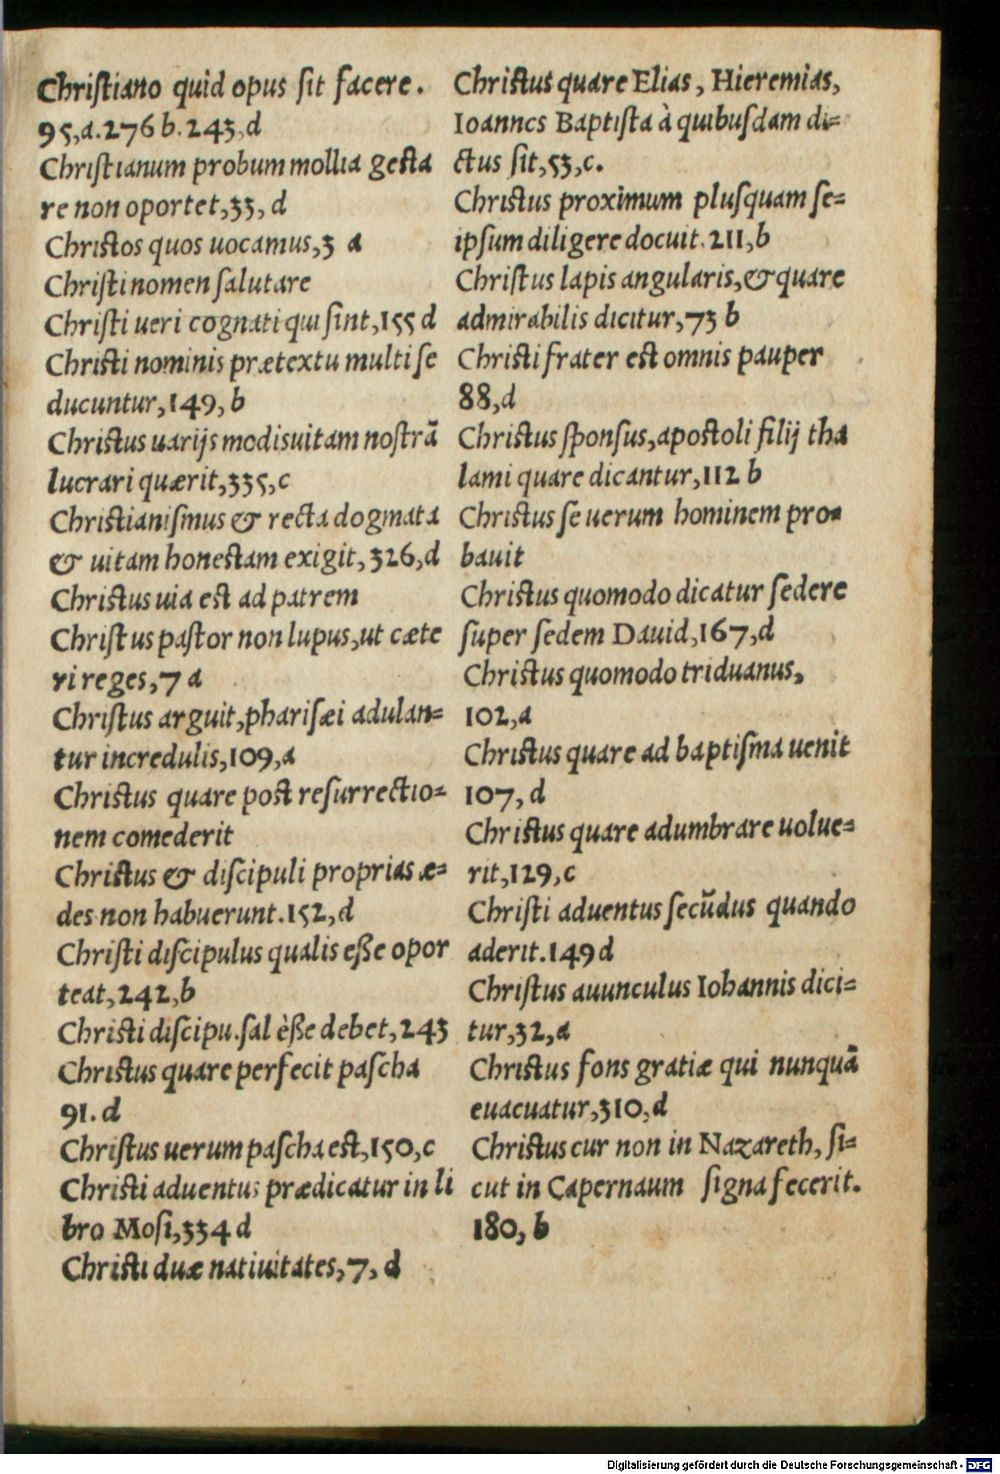 Chriſtiano quid opus ſit facere.
95,a.276 b.243,d
Chriſtianum probum mollia geſta
re non oportet,33, d
Chriſtos quos uocamus,3 a
Chriſti nomen ſalutare
Chriſti ueri cognati qui ſint,155 d
Chriſti nominis prætextu multi ſe
ducuntur,149, b
Chriſtus uarijs modis uitam noſtrā
lucrari quærit,335,c
Chriſtianiſmus & recta dogmata
& uitam honeſtam exigit,326,d
Chriſtus uia eſt ad patrem
Chriſtus paſtor non lupus,ut cæte
ri reges,7 a
Chriſtus arguit,phariſæi adulan=
tur incredulis,109,a
Chriſtus quare poſt reſurrectio=
nem comederit
Chriſtus & diſcipuli proprias æ=
des non habuerunt.152,d
Chriſti diſcipulus qualis eſſe opor
teat,242,b
Chriſti diſcipu.ſal èſſe debet,243
Chriſtus quare perfecit paſcha
91.d
Chriſtus uerum paſcha eſt,150,c
Chriſti aduentus prædicatur in li
bro Moſi,334 d
Chriſti duæ natiuitates,7, d
Chriſtus quare Elias, Hieremias,
Ioannes Baptiſta à quibuſdam di=
ctus ſit,53,c.
Chriſtus proximum pluſquam ſe=
ipſum diligere docuit.211,b
Chriſtus lapis angularis,& quare
admirabilis dicitur,73 b
Chriſti frater eſt omnis pauper
88,d
Chriſtus ſponſus,apoſtoli filij tha
lami quare dicantur,112 b
Chriſtus ſe uerum hominem pro=
bauit
Chriſtus quomodo dicatur ſedere
ſuper ſedem Dauid,167,d
Chriſtus quomodo triduanus,
102,a
Chriſtus quare ad baptiſma uenit
107, d
Chriſtus quare adumbrare uolue=
rit,129,c
Chriſti aduentus ſecūdus quando
aderit.149 d
Chriſtus auunculus Iohannis dici=
tur,32,a
Chriſtus fons gratiæ qui nunquā
euacuatur,310,d
Chriſtus cur non in Nazareth, ſi=
cut in Capernaum ſigna fecerit.
180, b
Digitalisierung gefördert durch die Deutsche Forschungsgemeinschaft - DFG